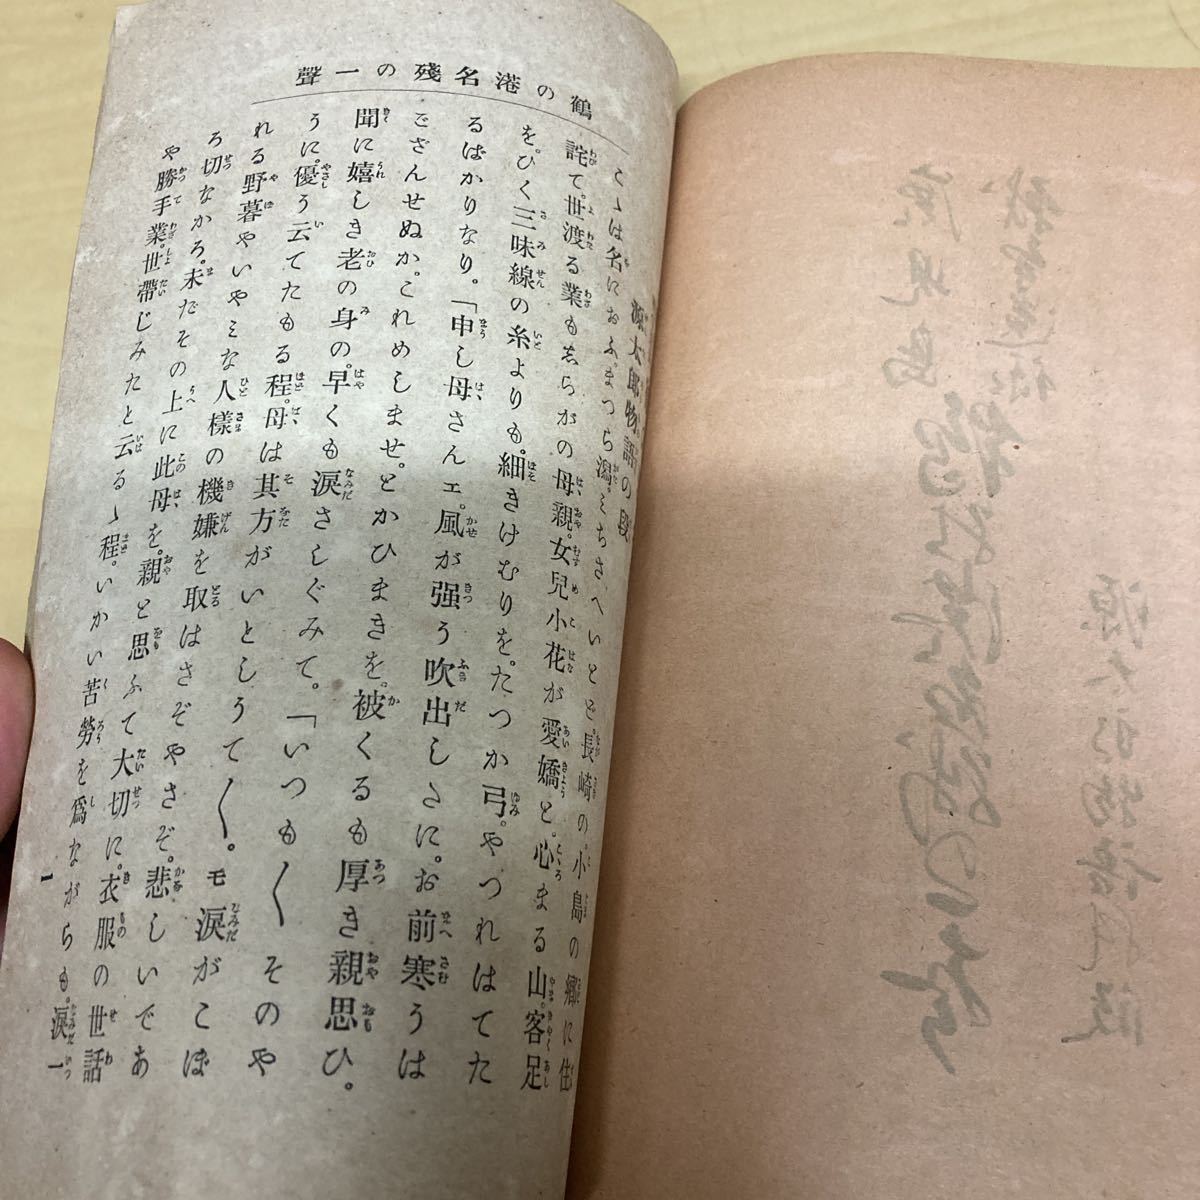 鶴の港名殘の一聲
源太郎物語の段
こゝは名におふ。まつち潟。みちさへいとど。長崎の。小島の郷に住
詫て。世渡る業も。しらがの母親。女兒小花が愛嬌と。心まる山。客足
を。ひく三味線の糸よりも。細きけむりを。たつか弓。やつれはてた
るばかりなり。「申し母さんェ。風が强う吹出したに。お前寒うは
ござんせぬか。これめしませ。とかひまきを。被くるも厚き親思ひ。
聞に嬉しき老の身の。早くも涙さしぐみて。「いつも〱そのや
うに。優う云てたもる程。母は其方がいとしうて〱。モ涙がこぼ
れる野暮やいやミな人樣の機嫌を取はさぞやさぞ。悲しいであ
ろ切なかろ。未だその上に此母を。親と思ふて大切に。衣服の世話
や勝手業。世帶じみたと云るゝ程。いかい苦勞を爲ながらも。涙一
1
源太郎物語の段